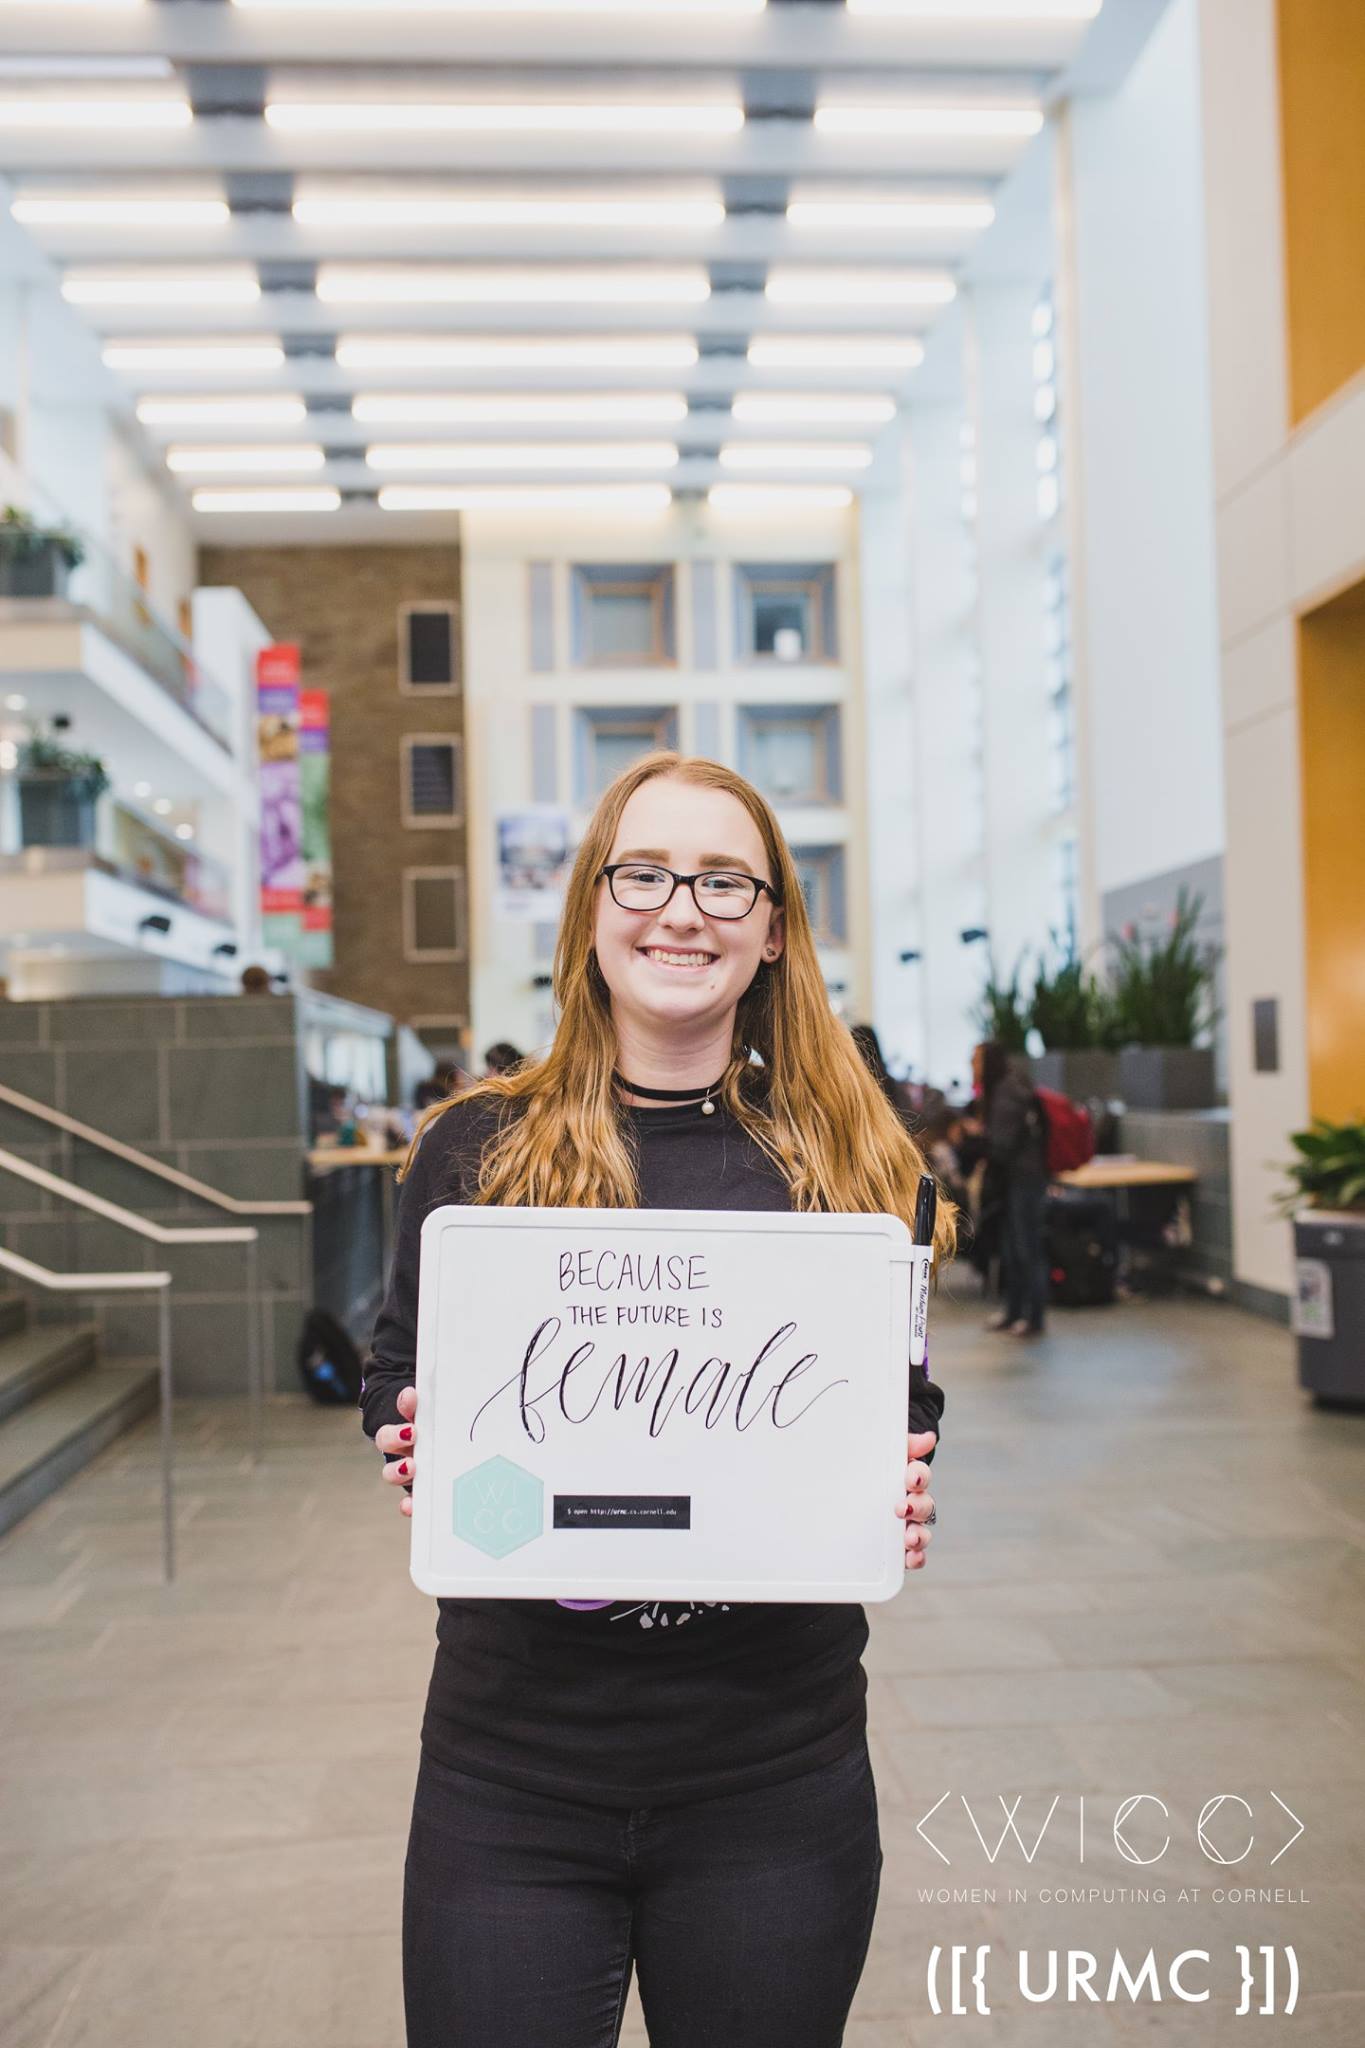 BECAUSE
THE FUTURE IS
female
WI
CC
$ open http://urmc.cs.cornell.edu
<WICC>
WOMEN IN COMPUTING AT CORNELL
([{ URMC }])